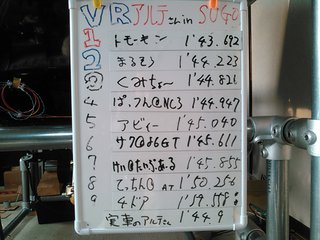 VRアルテさん in SUGO
1 トモーキン 1'43.692
2 まるそう 1'44.223
3 くみちょ〜 1'44.826
4 ぱ.つん@NC3 1'44.947
5 アビィー 1'45.040
6 サフ@86GT 1'45.611
7 1'45.855
8 てっちんB AT 1'50.256
9 4ドア 1'59.999
実車のアルテさん 1'44.9